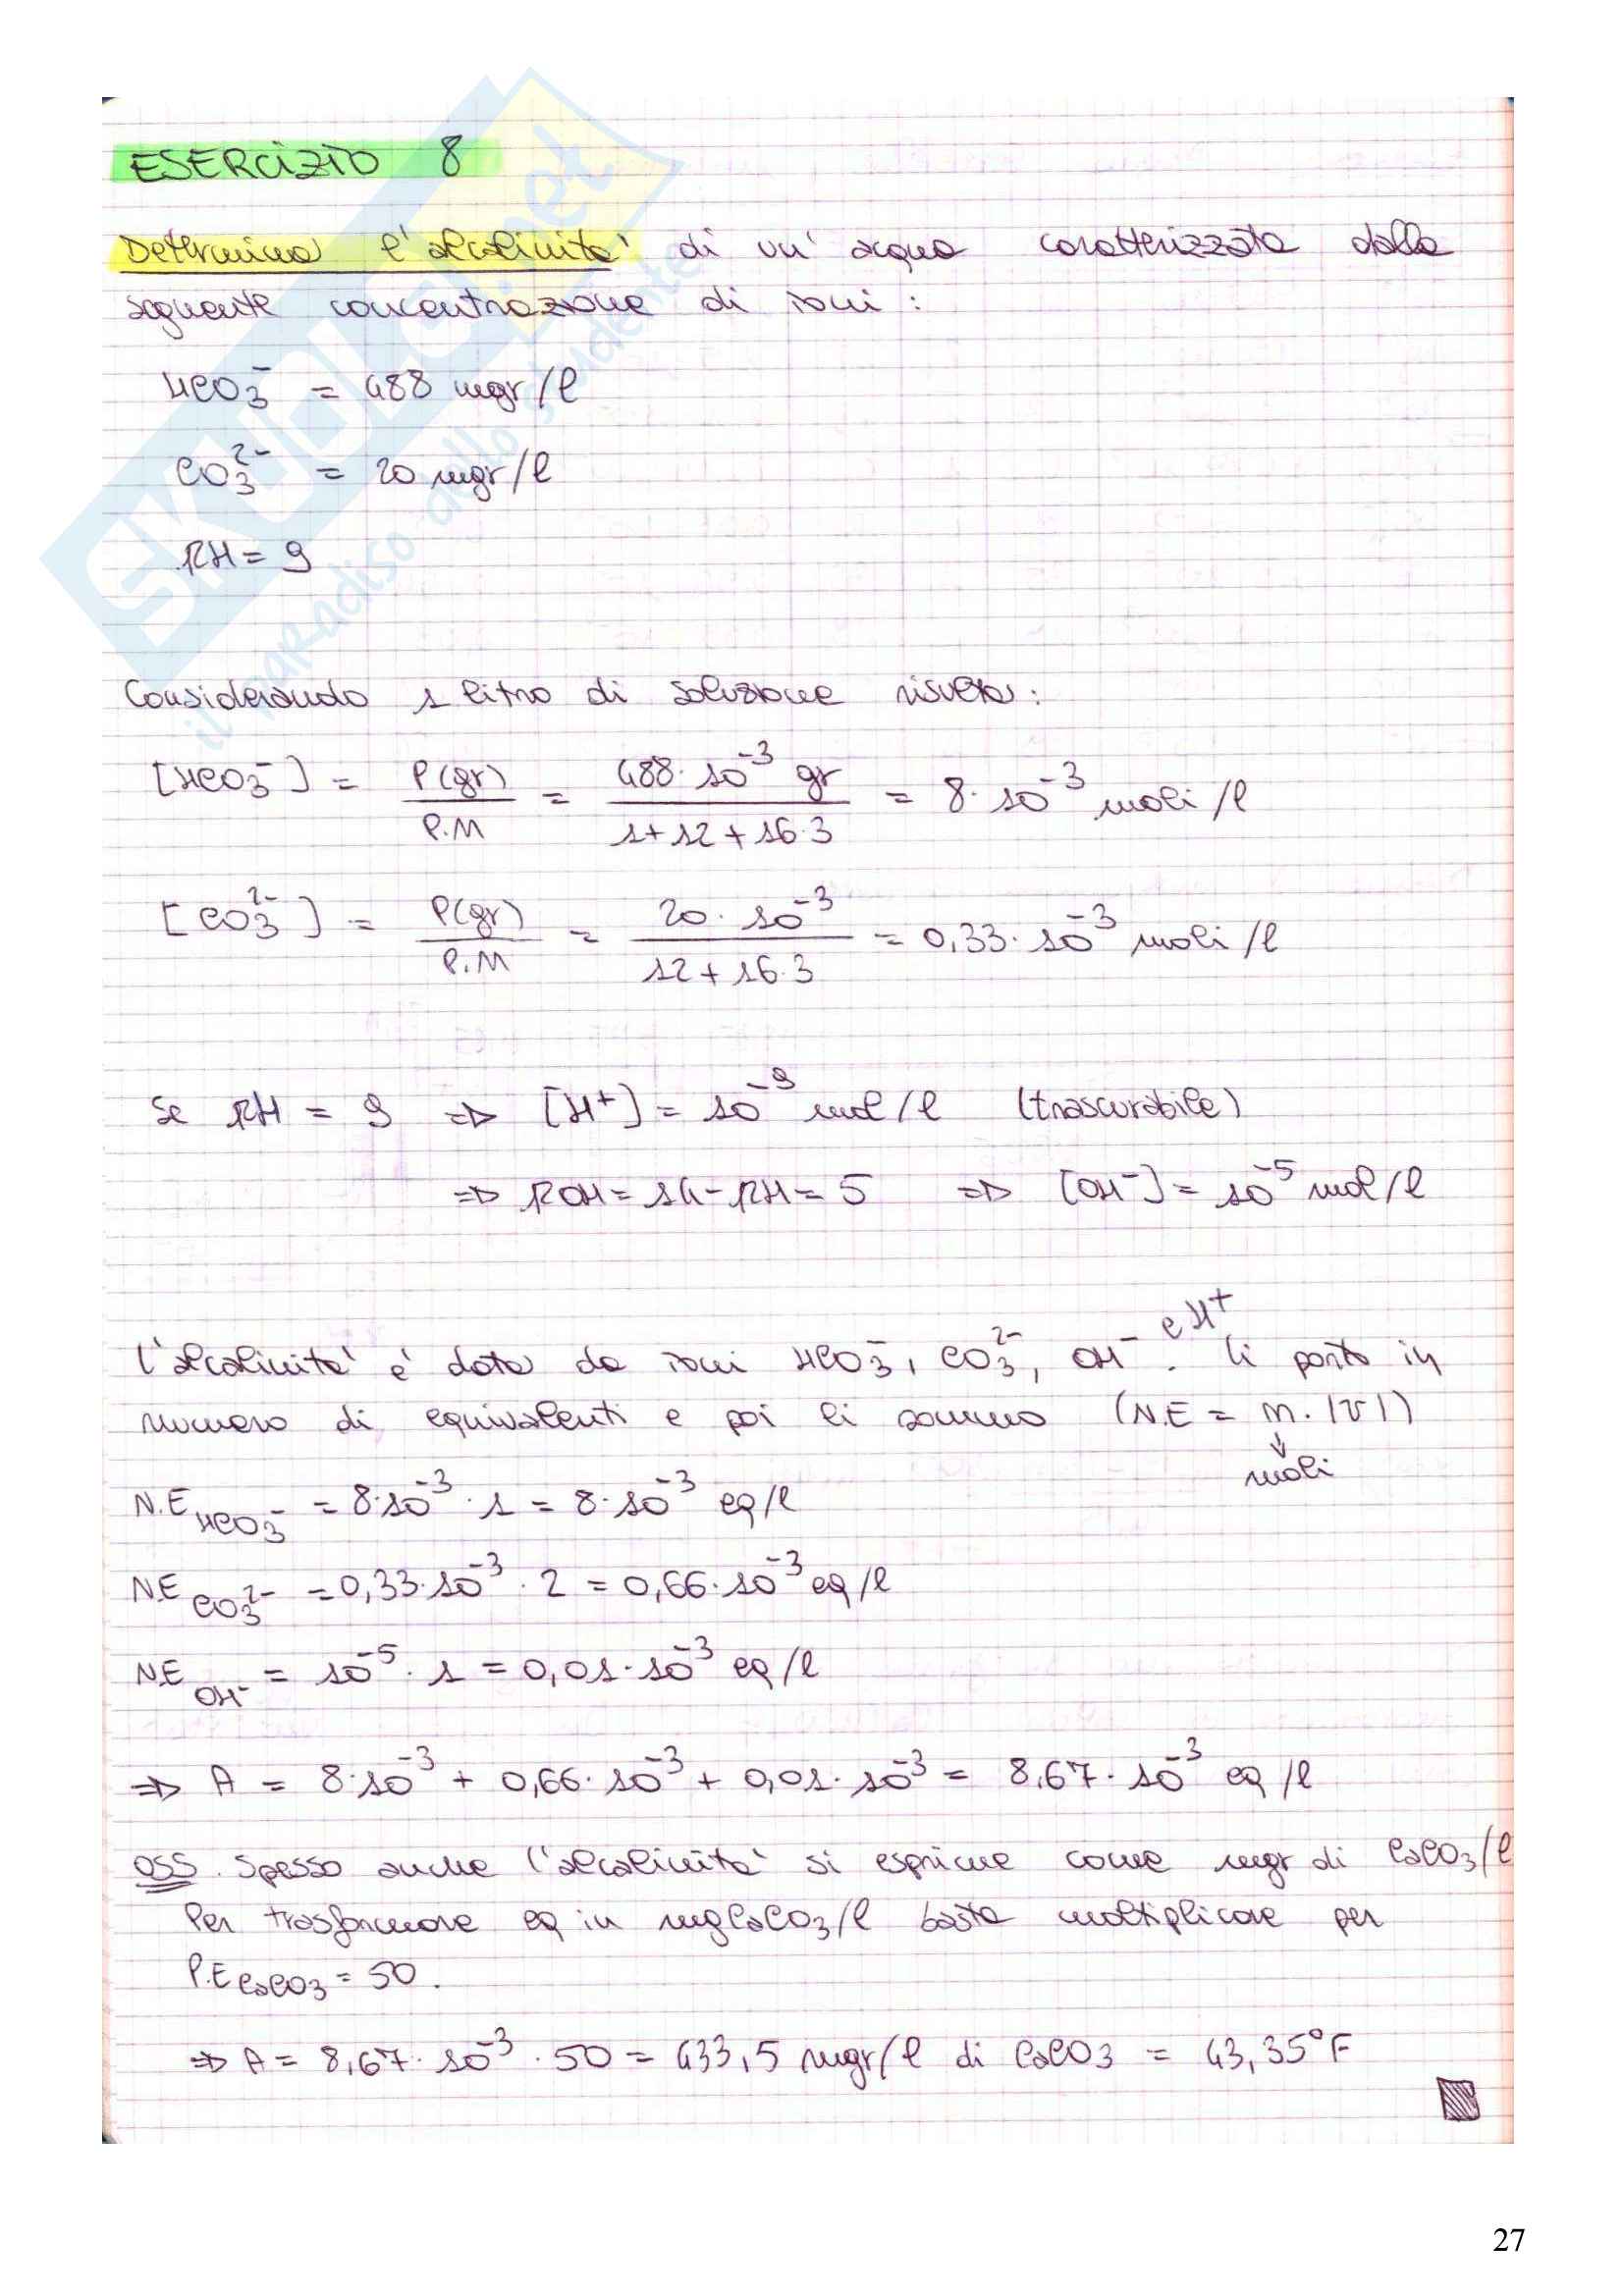 ESERCIZIO 8
Determina l'alcalinita' di un' acqua caratterizzata dalla
seguente concentrazione di ioni :
HCO₃⁻ = 488 mgr/l
CO₃²⁻ = 20 mgr/l
PH = 9
Considerando 1 litro di soluzione risulta :
[HCO₃⁻] = P(gr)/P.M = 488·10⁻³ gr/1+12+16·3 = 8·10⁻³ moli/l
[CO₃²⁻] = P(gr)/P.M = 20·10⁻³/12+16·3 = 0,33·10⁻³ moli/l
Se PH = 9 => [H⁺] = 10⁻⁹ mol/l (trascurabile)
=> POH = 14-PH = 5 => [OH⁻] = 10⁻⁵ mol/l
L'alcalinita' e' data da ioni HCO₃⁻, CO₃²⁻, OH⁻ e H⁺. Li porto in
numero di equivalenti e poi li sommo (N.E = m·|v|)
↓
moli
N.E HCO₃⁻ = 8·10⁻³ · 1 = 8·10⁻³ eq/l
N.E CO₃²⁻ = 0,33·10⁻³ · 2 = 0,66·10⁻³ eq/l
N.E OH⁻ = 10⁻⁵ · 1 = 0,01·10⁻³ eq/l
=> A = 8·10⁻³ + 0,66·10⁻³ + 0,01·10⁻³ = 8,67·10⁻³ eq/l
OSS. Spesso anche l'alcalinita' si esprime come mgr di CaCO₃/l
Per trasformare eq in mgCaCO₃/l basta moltiplicare per
P.E CaCO₃ = 50.
=> A = 8,67·10⁻³ · 50 = 433,5 mgr/l di CaCO₃ = 43,35°F
27
SKUOLA.net
il paradiso dello studente